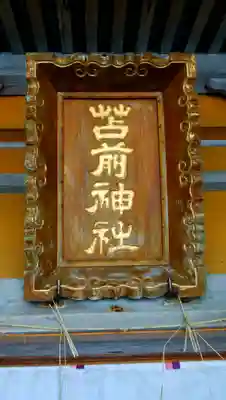 苫前神社